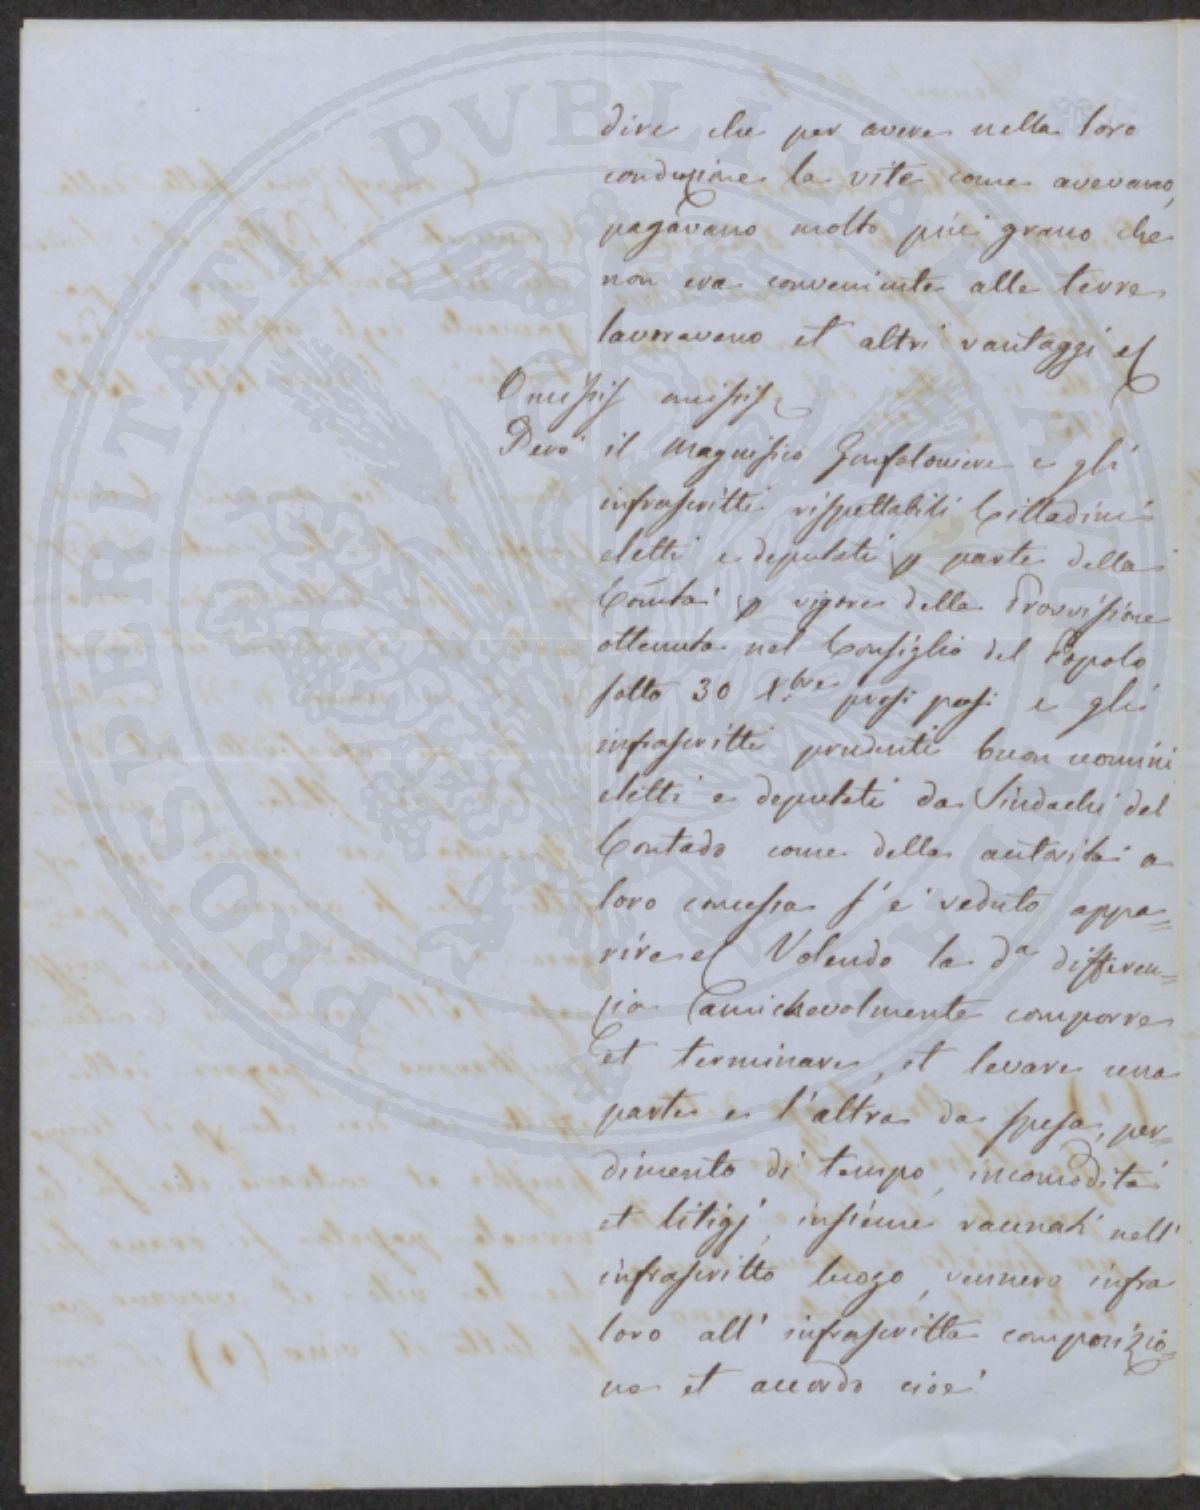 dire che per avere nella loro
conduzione la vite come avevano,
pagavano molto più grano che
non era conveniente alle terre
lavoraveno et altri vantaggi
Omissis omissis
Però il Magnifico Gonfaloniere e gli
infrascritti rispettabili Cittadini
eletti e deputati p parte della
Comtà p vigore della Provvisione
ottenuta nel Consiglio del Popolo
sotto 30 Xbre pross pass e gli
infrascritti prudenti buon uomini
eletti e deputati da Sindachi del
Contado come della autorità a
loro concessa s'è veduto appa=
rire Volendo la da differen=
zia amichevolmente comporre
et terminare, et levare una
parte e l'altra da spesa, per=
dimento di tempo, incomodità
et litigj, insieme raunati nell'
infrascritto luogo, vennero infra
loro all' infrascritta composizio=
ne et accordo cioè
PROSPERITATI PVBLICAE